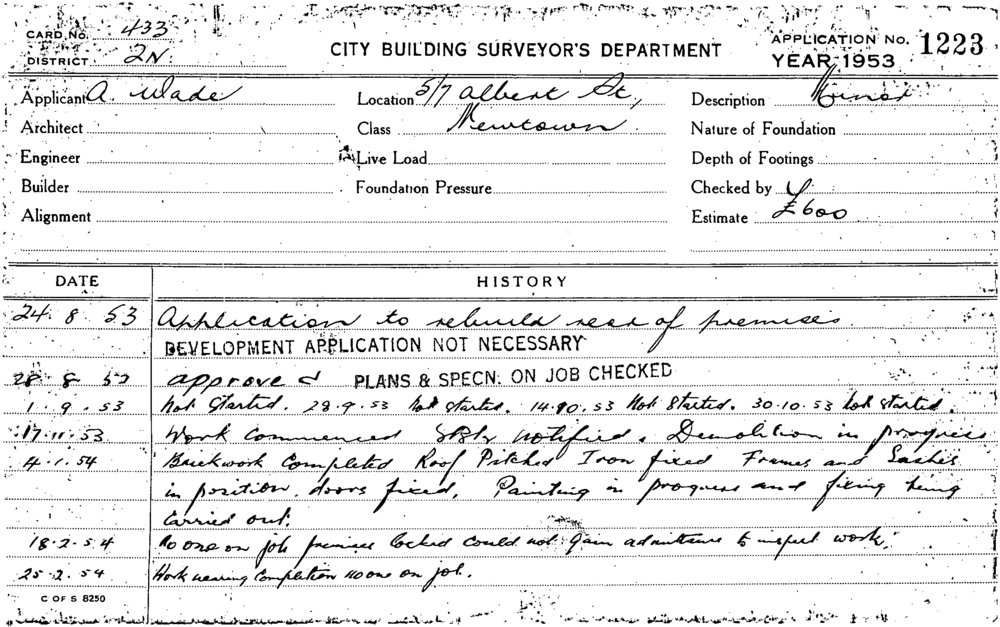 CARD No. 433
DISTRICT 2N.
CITY BUILDING SURVEYOR'S DEPARTMENT
APPLICATION No. 1223
YEAR 1953
Applicant A. Wade
Location 5/7 Albert St,
Description Minor
Architect
Class Newtown.
Nature of Foundation
Engineer
Live Load
Depth of Footings
Builder
Foundation Pressure
Checked by
Alignment
Estimate £600
DATE HISTORY
24. 8. 53 Application to rebuild rear of premises
DEVELOPMENT APPLICATION NOT NECESSARY
28. 8. 53 approved PLANS & SPECN: ON JOB CHECKED
1. 9. 53 Not Started. 28.9.53 Not started. 14.10.53 Not Started. 30.10.53 Not Started.
17.11.53 Work Commenced notified. Demolition in progress
4.1.54 Brickwork Completed Roof Pitched Iron fixed Frames and Sashes
in position. doors fixed. Painting in progress and being
Carried out.
18.2.54 No one on job premises locked could not gain admittance to inspect work.
25.2.54 Work nearing Completion no one on job.
C OF S 8250